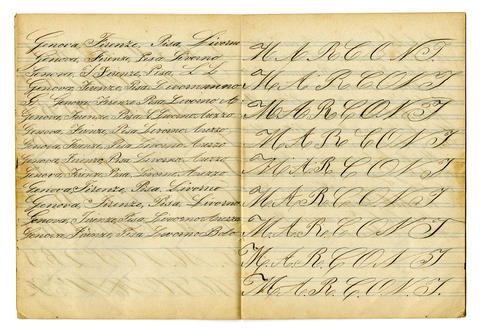 Genova, Firenze, Pisa, Livorno
Genova, Firenze, Pisa Livorno
Genova, Firenze, Pisa, L
Genova Firenze, Pisa, Livorno
Genova Firenze Pisa Livorno A
Genova, Firenze, Pisa Livorno, Arezzo
Genova Firenze, Pisa, Livorno, Arezzo
Genova, Firenze, Pisa, Livorno Arezzo
Genova, Firenze, Pisa, Livorno, Arezzo
Genova, Firenze, Pisa, Livorno, Arezzo
Genova, Firenze, Pisa, Livorno
Genova, Firenze, Pisa, Livorno
Genova, Firenze, Pisa, Livorno Arezzo
Genova, Firenze, Pisa Livorno Bolo
M A R C O N I.
M A R C O N I
M A R C O N I
M A R C O N I
M A R C O N I.
M A R C O N I
M A R C O N I
M. A. R. C. O N I
M. A. R. C. O. N. I.